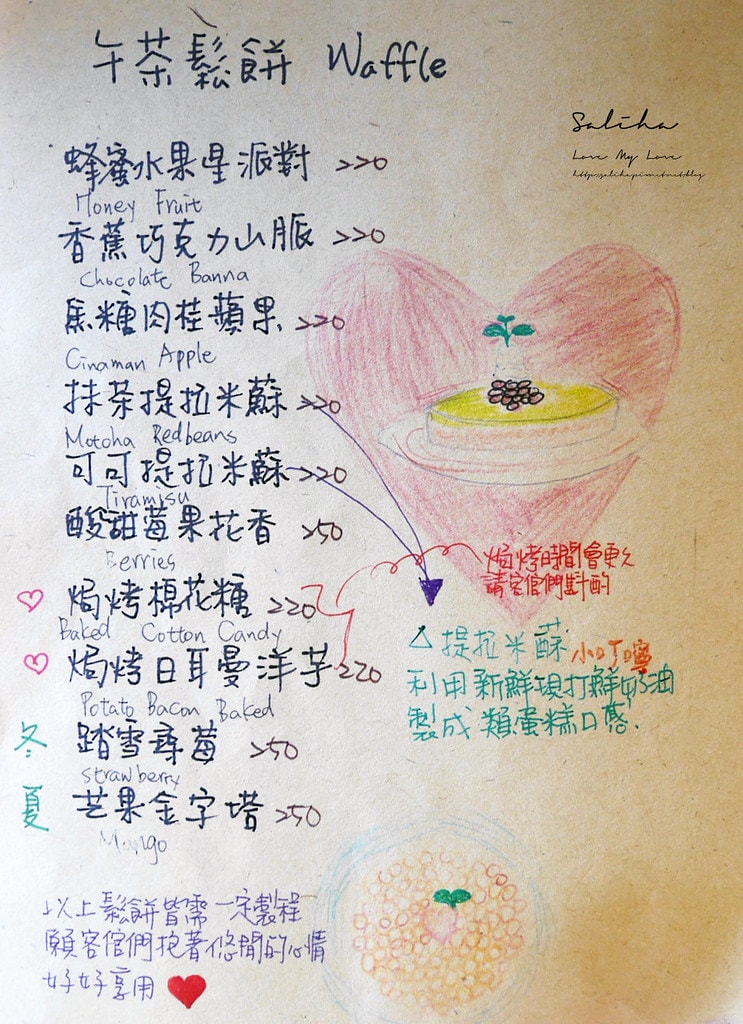 午茶鬆餅 Waffle
Saliha
Love My Love
蜂蜜水果星派對 220
Honey Fruit
香蕉巧克力山脈 220
Chocolate Banna
焦糖肉桂蘋果 220
Cinaman Apple
抹茶提拉米蘇 220
Motcha Redbeans
可可提拉米蘇 220
Tiramisu
酸甜莓果花香 250
Berries
焗烤棉花糖 220
Baked Cotton Candy
焗烤日耳曼洋芋 220
Potato Bacon Baked
冬 踏雪尋莓 250
strawberry
夏 芒果金字塔 250
Mango
焗烤時間會更久
請客倌們斟酌
△提拉米蘇 小叮嚀
利用新鮮現打鮮奶油
製成類蛋糕口感.
以上鬆餅皆需一定製程
願客倌們抱著悠閒的心情
好好享用